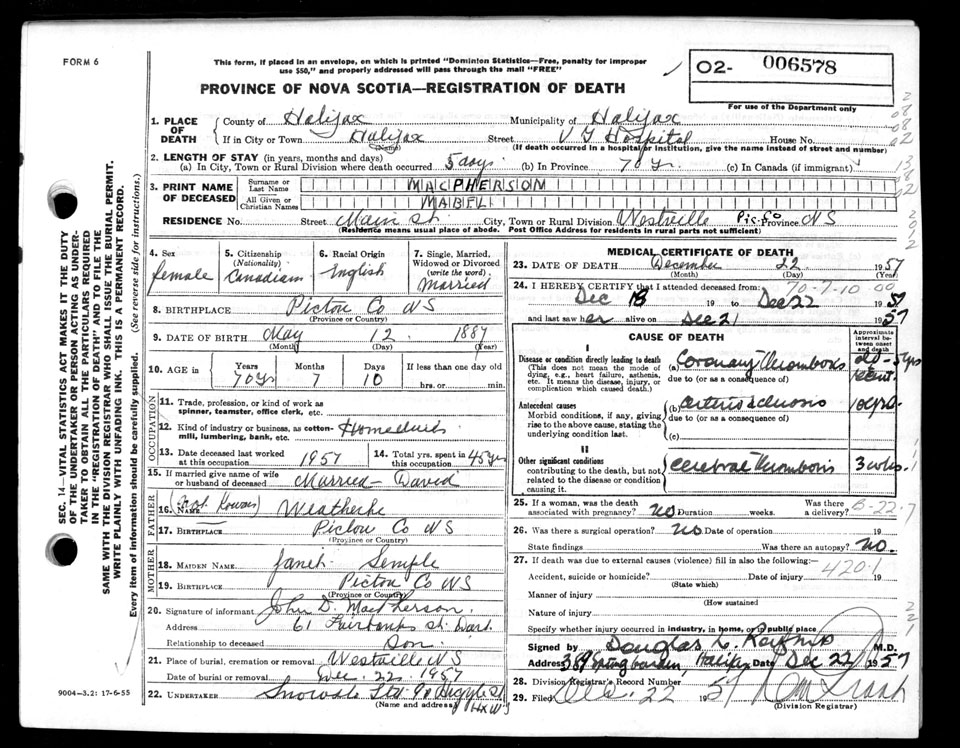 FORM 6
This form, if placed in an envelope, on which is printed "Dominion Statistics—Free, penalty for improper
use $50," and properly addressed will pass through the mail "FREE"
O2- 006578
PROVINCE OF NOVA SCOTIA—REGISTRATION OF DEATH
For use of the Department only
1. PLACE OF DEATH
County of Halifax Municipality of Halifax
If in City or Town Halifax Street V G Hospital House No.
(Name) (If death occurred in a hospital or institution, give the name instead of street and number)
2. LENGTH OF STAY (in years, months and days)
(a) In City, Town or Rural Division where death occurred 5 days (b) In Province 70 yr. (c) In Canada (if immigrant)
3. PRINT NAME OF DECEASED
Surname or Last Name MACPHERSON
All Given or Christian Names MABEL
RESIDENCE No. Street Main St. City, Town or Rural Division Westville Pic. Co Province NS
(Residence means usual place of abode. Post Office Address for residents in rural parts not sufficient)
4. Sex
female
5. Citizenship
(Nationality)
Canadian
6. Racial Origin
English
7. Single, Married,
Widowed or Divorced
(write the word)
Married
8. BIRTHPLACE Pictou Co NS
(Province or Country)
9. DATE OF BIRTH May 12 1887
(Month) (Day) (Year)
10. AGE in
Years Months Days If less than one day old
70 Yrs 7 10 hrs. or min.
OCCUPATION
11. Trade, profession, or kind of work as
spinner, teamster, office clerk, etc.
12. Kind of industry or business, as cotton-
mill, lumbering, bank, etc. Homeduties
13. Date deceased last worked
at this occupation 1957
14. Total yrs. spent in
this occupation 45 yrs
15. If married give name of wife
or husband of deceased Married - David
FATHER
16. NAME Weatherbe
17. BIRTHPLACE Pictou Co NS
(Province or Country)
MOTHER
18. MAIDEN NAME Janet Semple
19. BIRTHPLACE Pictou Co NS
(Province or Country)
20. Signature of informant John D. MacPherson.
Address 61 Fairbanks St. Dart.
Relationship to deceased Son.
21. Place of burial, cremation or removal Westville NS
Date of burial or removal Dec. 22. 1957
22. UNDERTAKER Snows Ltd. 90 Argyle St
(Name and address) Hx NS
MEDICAL CERTIFICATE OF DEATH
23. DATE OF DEATH December 22 1957
(Month) (Day) (Year)
70-7-10-00
24. I HEREBY CERTIFY that I attended deceased from:
Dec 18 19 to Dec 22 1957
and last saw her alive on Dec 21 1957
CAUSE OF DEATH
Approximate
interval between
onset
and death
I
Disease or condition directly leading to death
(This does not mean the mode of
dying, e.g., heart failure, asthenia,
etc. It means the disease, injury, or
complication which caused death.)
(a) Coronary Thrombosis old - 5 yrs
due to (or as a consequence of) recent.
Antecedent causes
Morbid conditions, if any, giving
rise to the above cause, stating the
underlying condition last.
(b) arteriosclerosis 10 yrs.
due to (or as a consequence of)
(c)
II
Other significant conditions
contributing to the death, but not
related to the disease or condition
causing it.
Cerebral Thrombosis 3 wks.
25. If a woman, was the death
associated with pregnancy? No Duration weeks. Was there
a delivery?
26. Was there a surgical operation? No Date of operation 19
State findings Was there an autopsy? No.
27. If death was due to external causes (violence) fill in also the following:
420.1
Accident, suicide or homicide? Date of injury 19
(State which)
Manner of injury
(How sustained
Nature of injury
Specify whether injury occurred in industry, in home, or in public place
Signed by Douglas L. M.D.
Address 389 Spring Garden, Halifax Date Dec 22 1957
28. Division Registrar's Record Number
29. Filed Dec. 22 1957
(Division Registrar)
SEC. 14—VITAL STATISTICS ACT MAKES IT THE DUTY
OF THE UNDERTAKER OR PERSON ACTING AS UNDER-
TAKER TO OBTAIN ALL THE PARTICULARS REQUIRED
IN THE "REGISTRATION OF DEATH" AND TO FILE THE
SAME WITH THE DIVISION REGISTRAR WHO SHALL ISSUE THE BURIAL PERMIT.
WRITE PLAINLY WITH UNFADING INK. THIS IS A PERMANENT RECORD.
Every item of information should be carefully supplied. (See reverse side for instructions.)
9004-3.2: 17-6-55